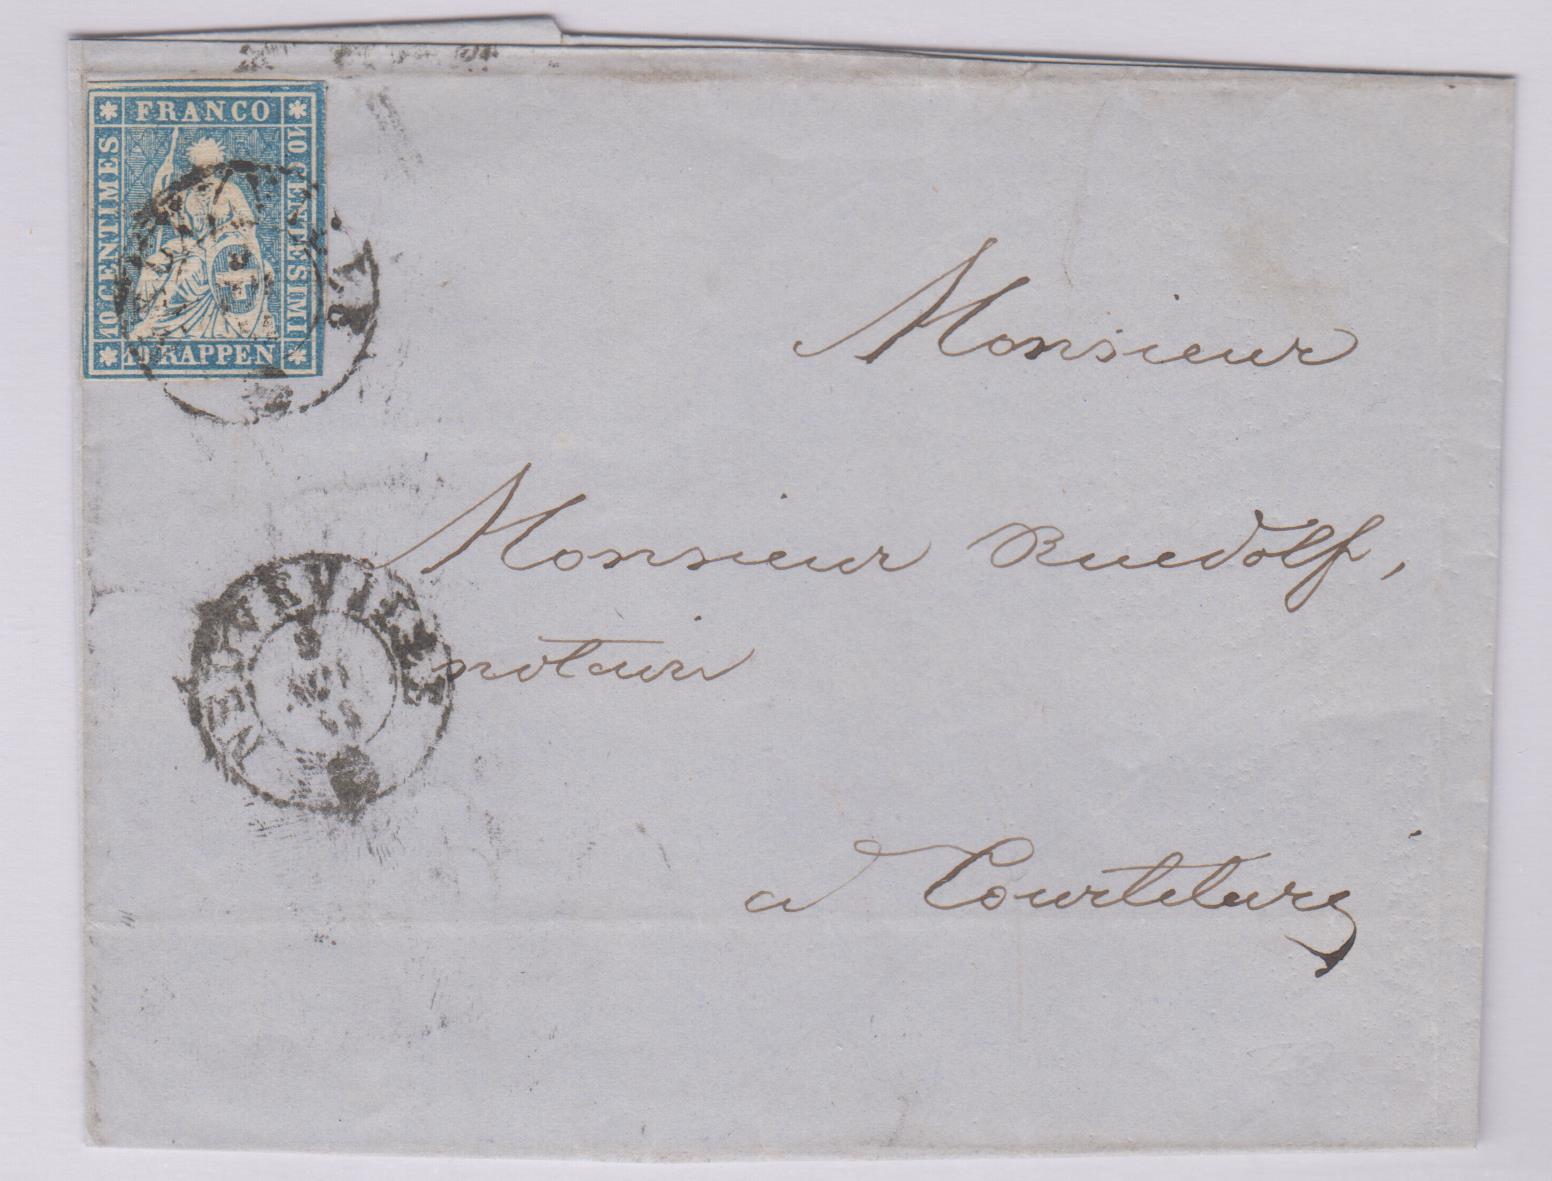 FRANCO
10 CENTIMES
10 CENTESIMI
10 RAPPEN
NEUVEVILLE
8
58
Monsieur
Monsieur Ruedolf,
notaire
à Courtelary